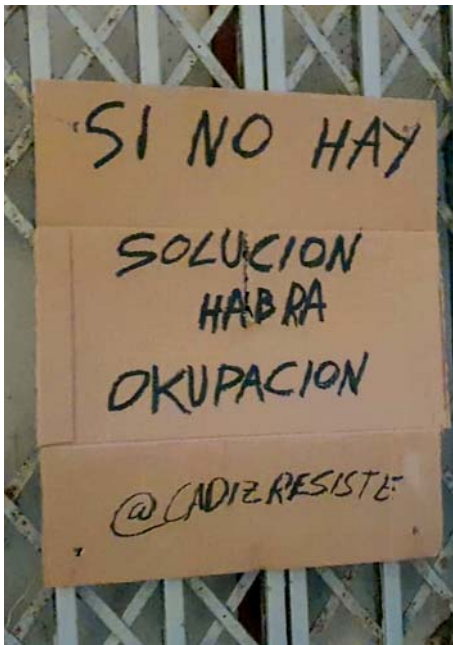 SI NO HAY
SOLUCION
HABRA
OKUPACION
@CADIZRESISTE